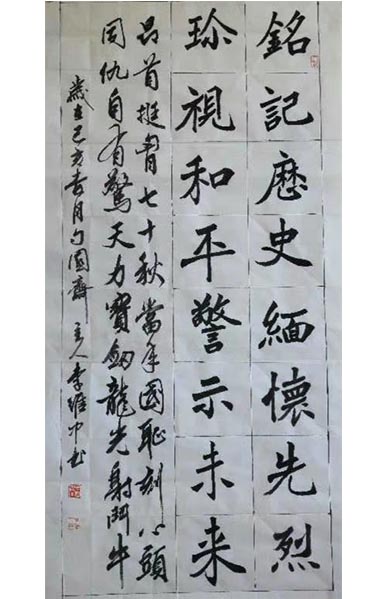 銘記歷史緬懷先烈
珎視和平警示未来
昂首挺胷七十秋當年國恥刻心頭
同仇自有驚天力寶劍龍光射鬥牛
歲在己亥春月勺園齋主人李維中书